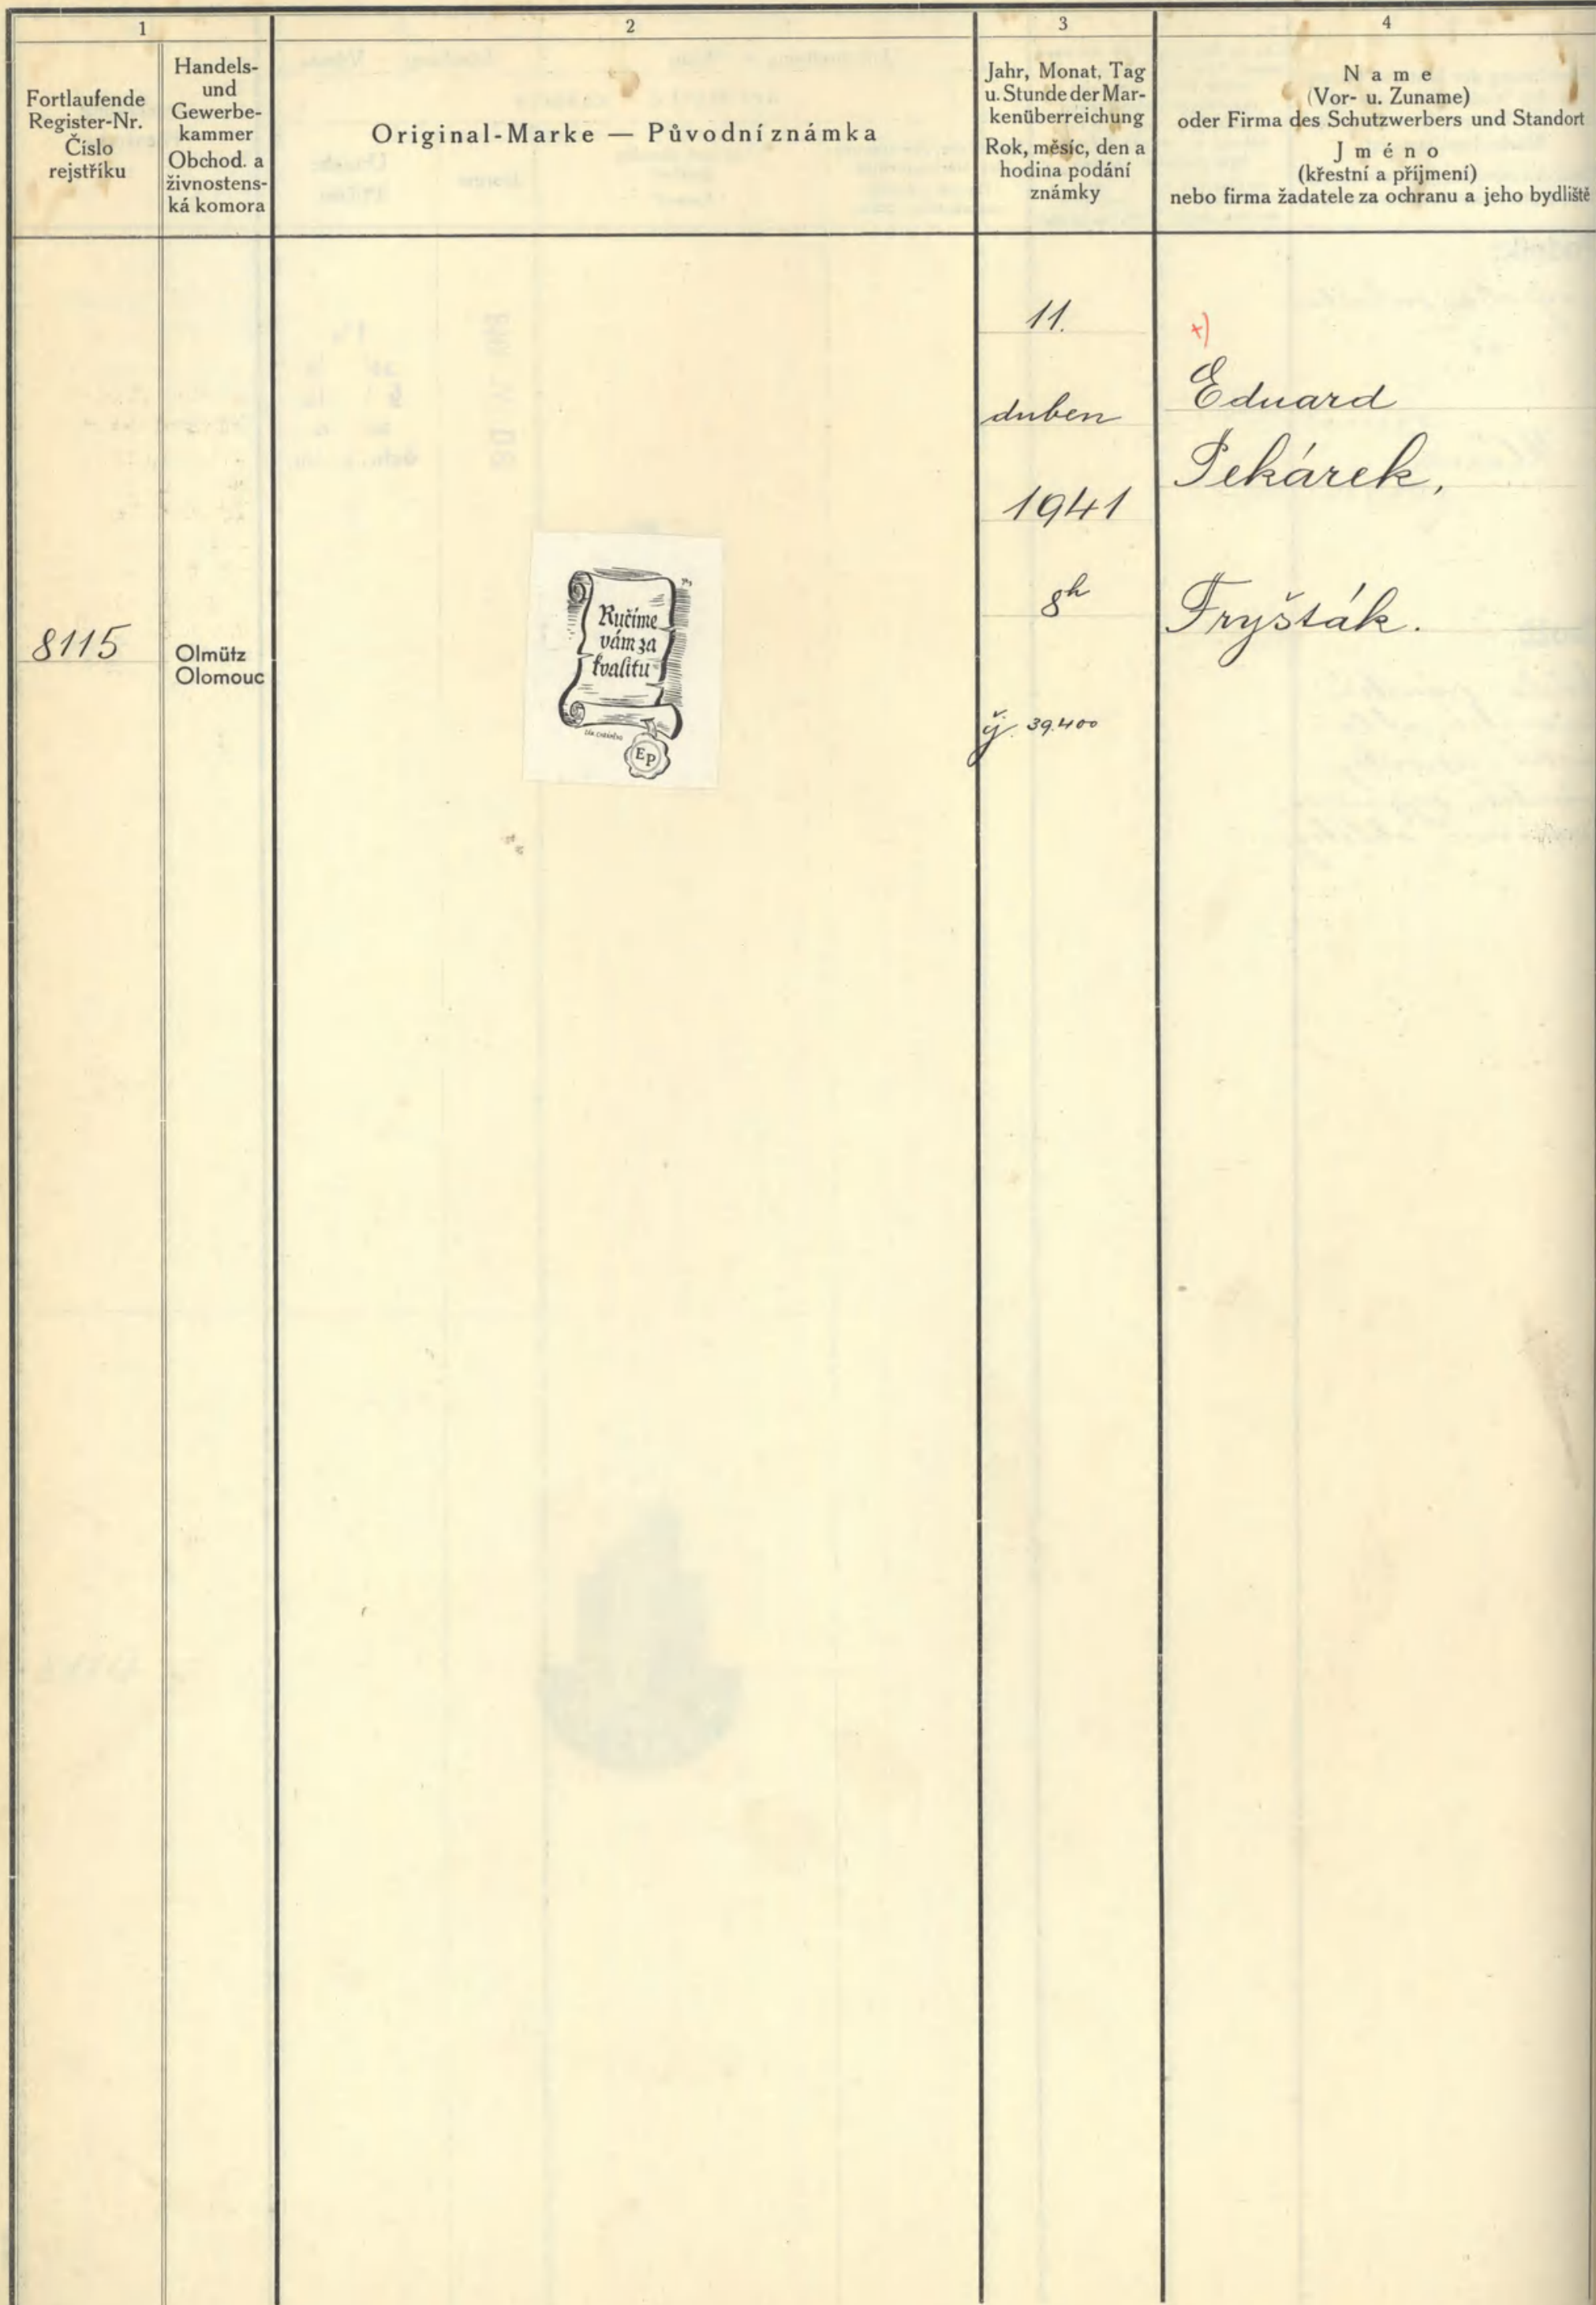 1
Fortlaufende
Register-Nr.
Číslo
rejstříku
Handels-
und
Gewerbe-
kammer
Obchod. a
živnostens-
ká komora
2
Original-Marke — Původní známka
3
Jahr, Monat, Tag
u. Stunde der Mar-
kenüberreichung
Rok, měsíc, den a
hodina podání
známky
4
Name
(Vor- u. Zuname)
oder Firma des Schutzwerbers und Standort
Jméno
(křestní a příjmení)
nebo firma žadatele za ochranu a jeho bydliště
8115
Olmütz
Olomouc
Ručíme
vám za
kvalitu
EP
11.
duben
1941
8h
čj. 39.400
+)
Eduard
Pekárek,
Fryšták.